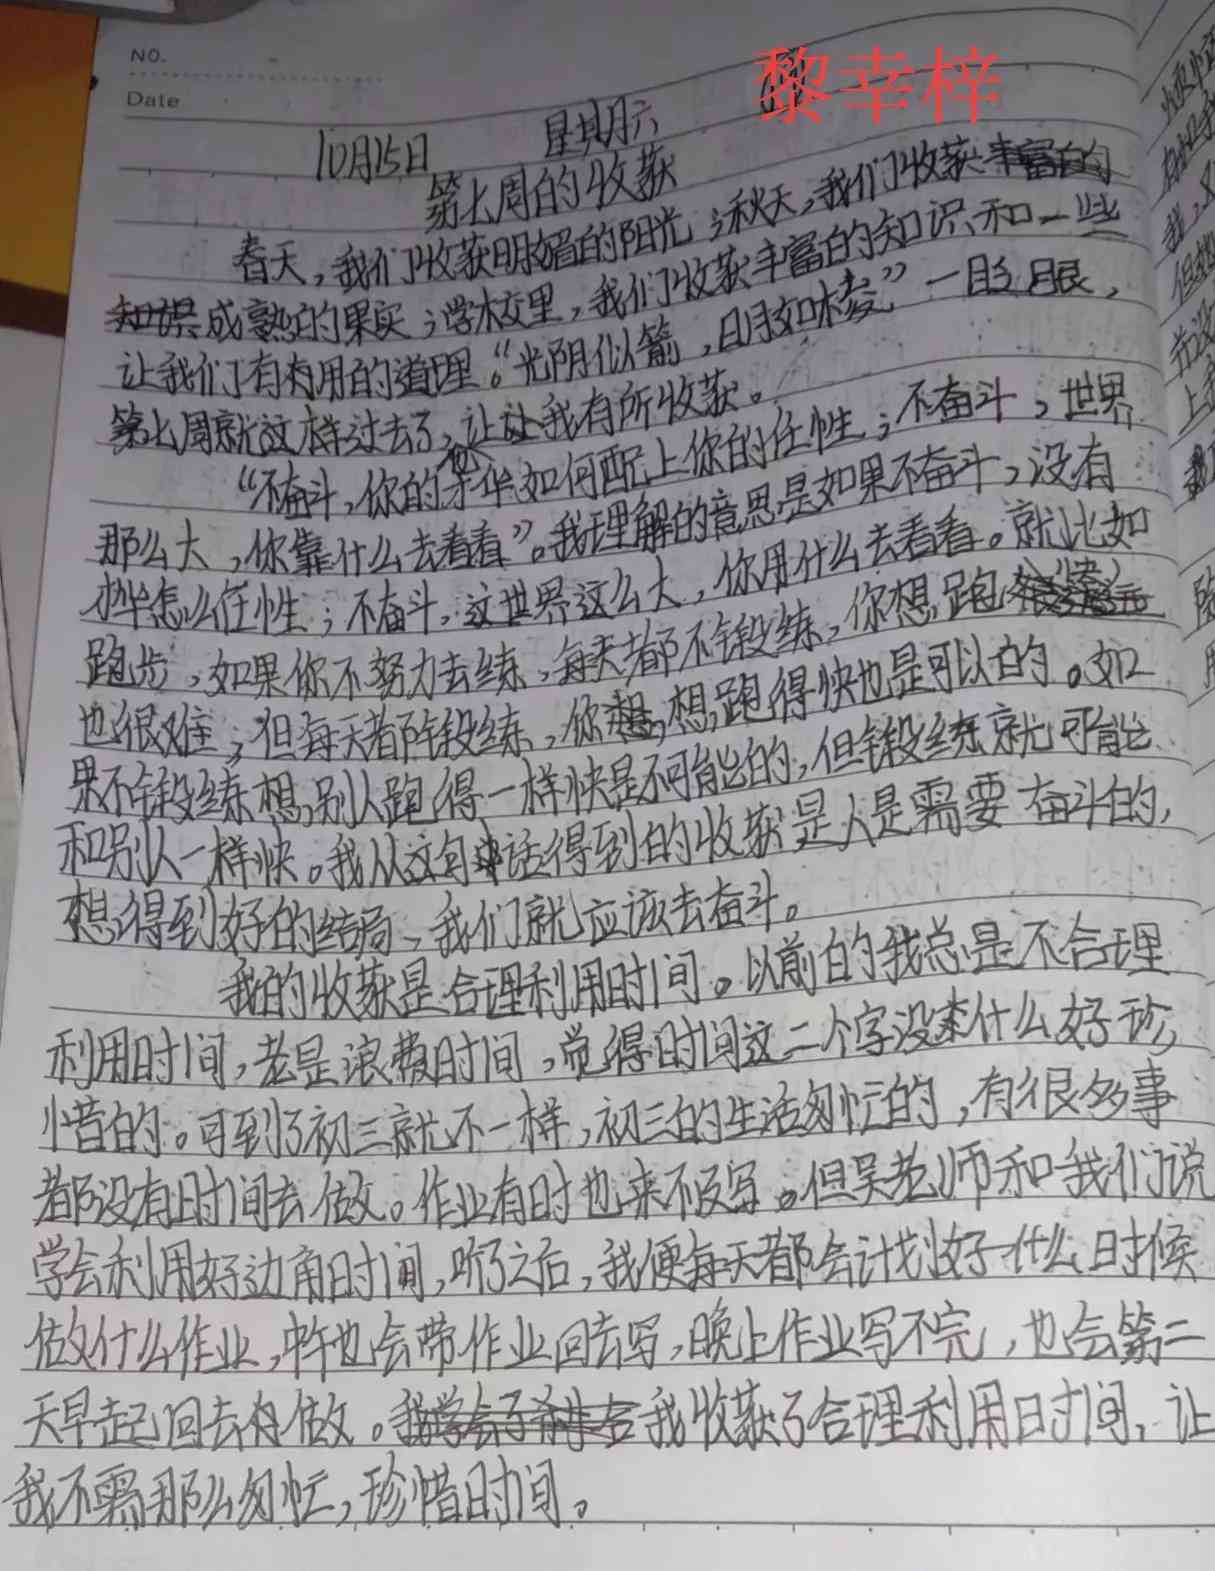 NO.
黎幸梓
Date
10月15日 星期六
第七周的收获
春天，我们收获明媚的阳光；秋天，我们收获丰富的
知识成熟的果实；学校里，我们收获丰富的知识和一些
让我们有有用的道理。“光阴似箭，日月如梭”一眨眼，
第七周就这样过去了，让让我有所收获。
“不奋斗，你的才华如何配上你的任性；不奋斗，世界
那么大，你靠什么去看看”。我理解的意思是如果不奋斗，没有
才华怎么任性；不奋斗，这世界这么大，你用什么去看看。就比如
跑步，如果你不努力去练，每天都不锻练，你想跑
也很难；但每天都锻练，你想，想跑得快也是可以的。如
果不锻练想别人跑得一样快是不可能的，但锻练就可能
和别人一样快。我从这句话得到的收获是人是需要奋斗的，
想得到好的结局，我们就应该去奋斗。
我的收获是合理利用时间。以前的我总是不合理
利用时间，老是浪费时间，觉得时间这二个字没什么好珍
惜的。可到了初三就不一样，初三的生活匆忙的，有很多事
都没有时间去做。作业有时也来不及写。但吴老师和我们说
学会利用好边角时间，听了之后，我便每天都会计划好什么时候
做什么作业，中午也会带作业回去写，晚上作业写不完，也会第二
天早起回去做。我学会了我收获了合理利用时间，让
我不需那么匆忙，珍惜时间。